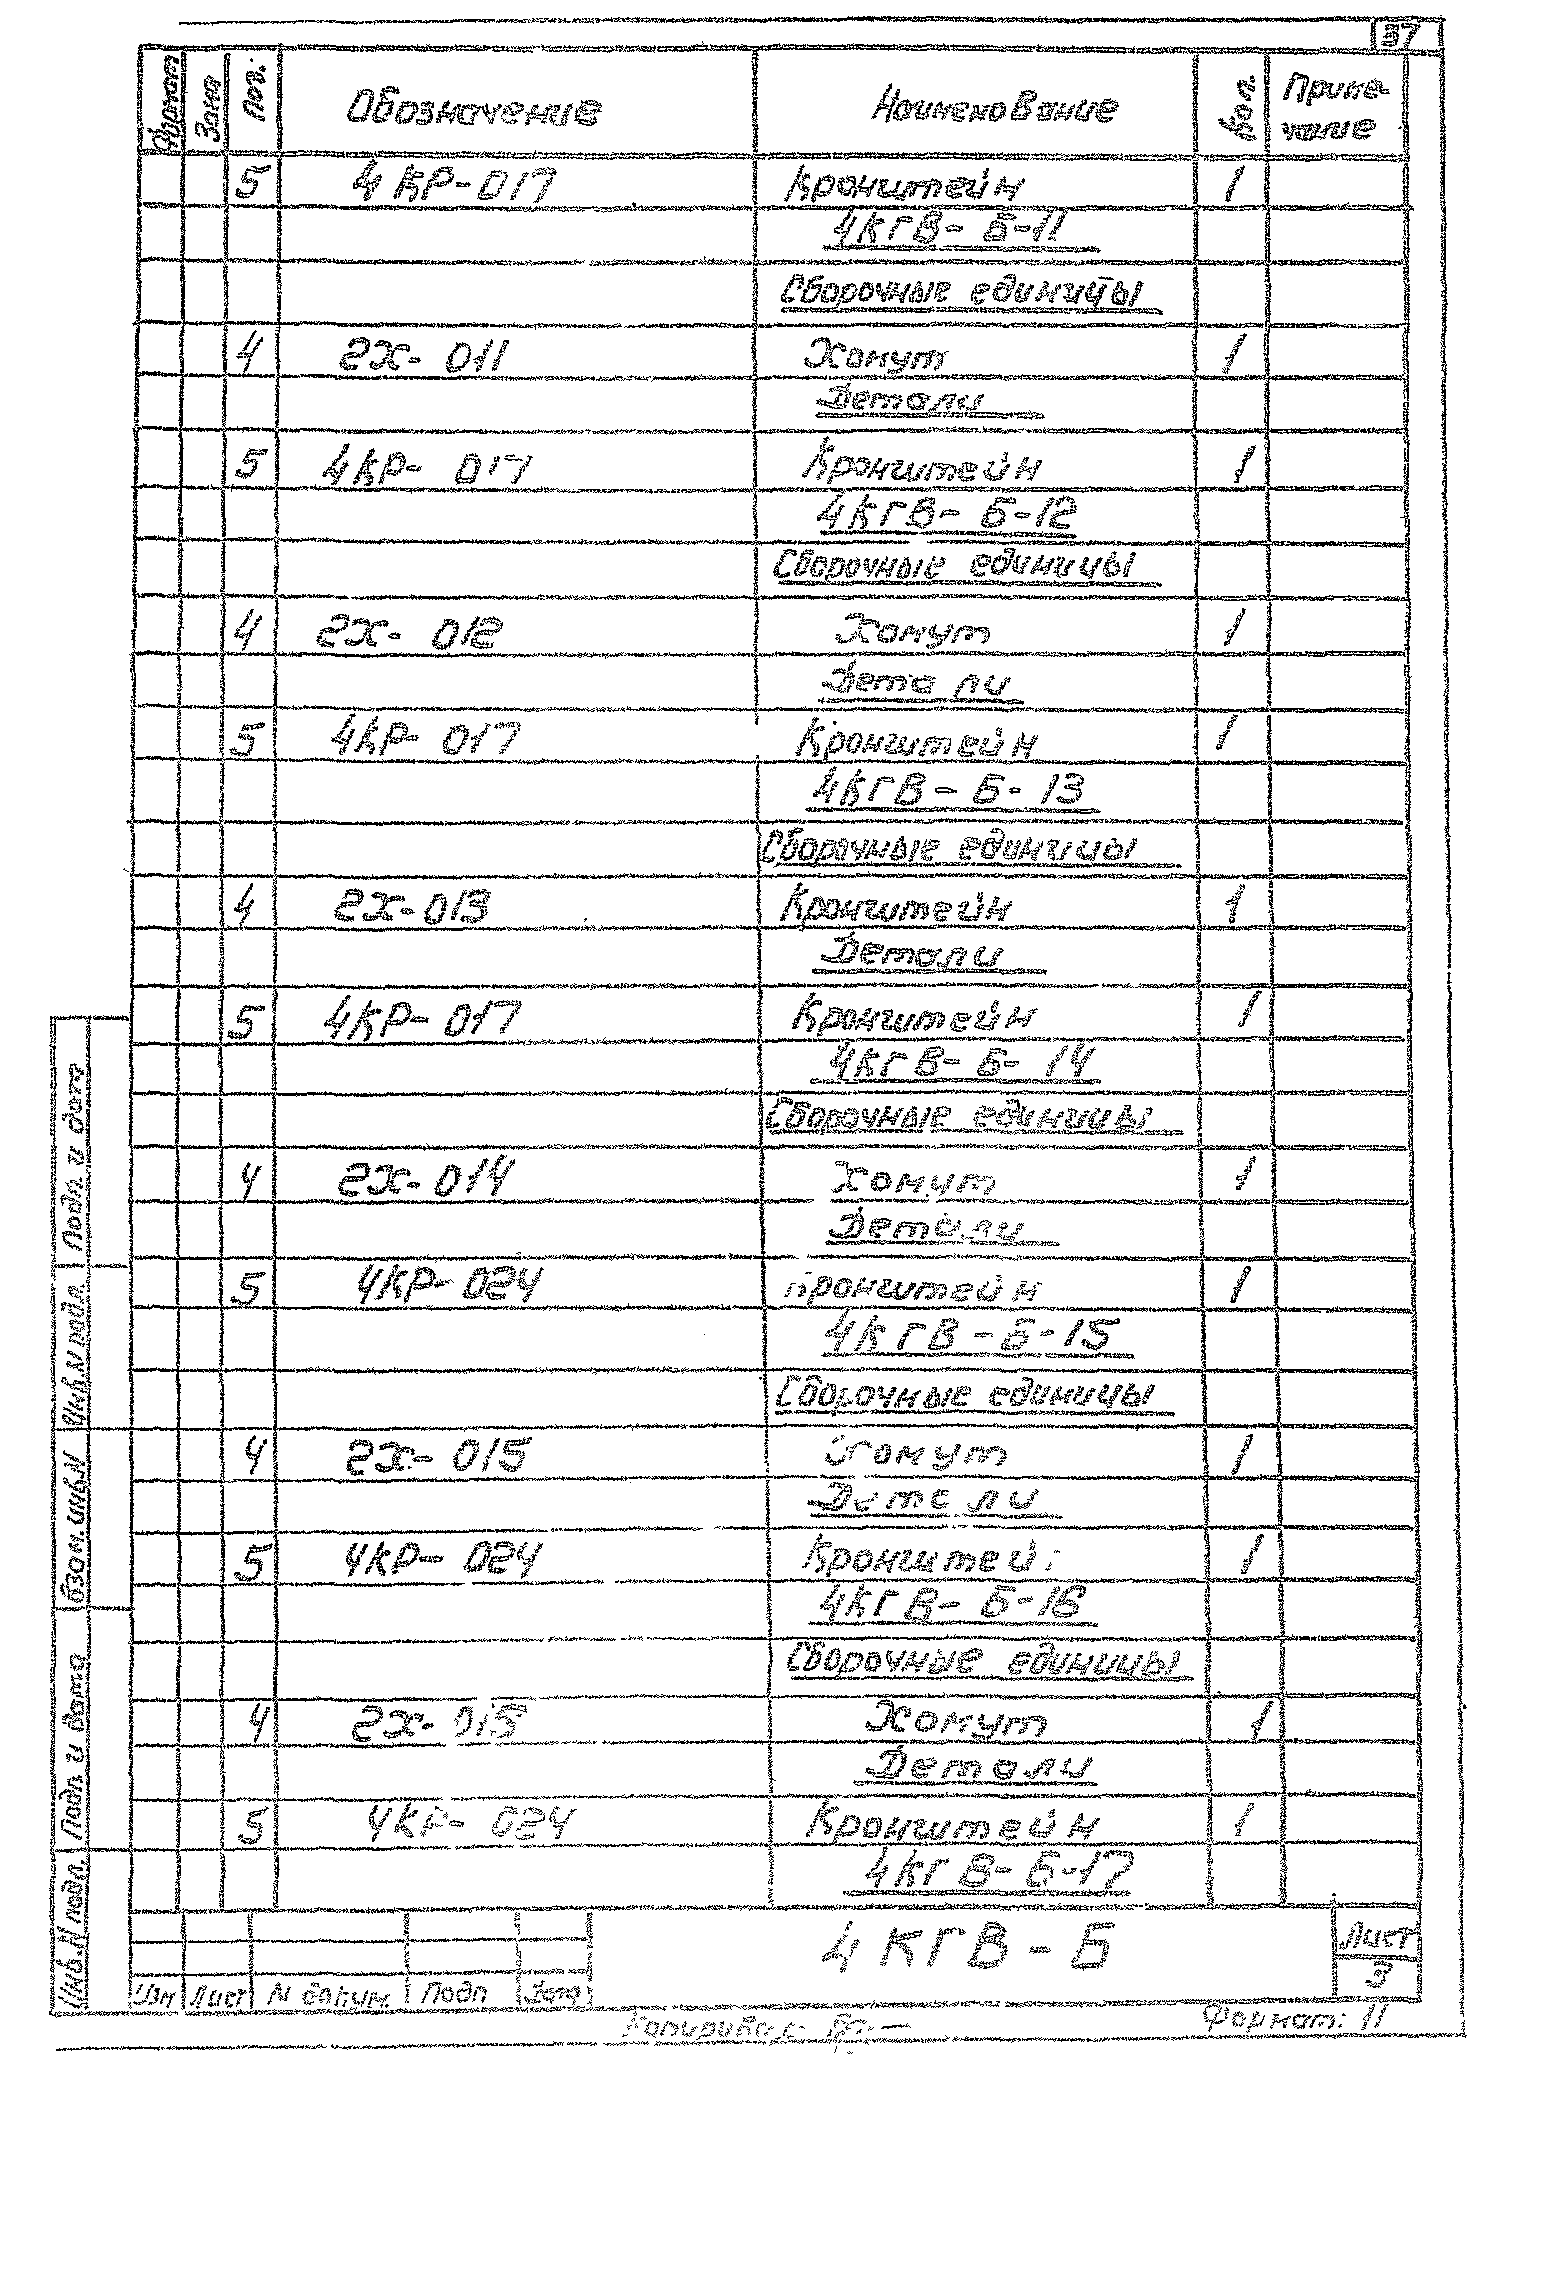 37
Формат Зона Поз. Обозначение Наименование Кол. Приме-
чание
5 4КР-017 Кронштейн 1
4КГВ-Б-11
Сборочные единицы
4 2Х-011 Хомут 1
Детали
5 4КР-017 Кронштейн 1
4КГВ-Б-12
Сборочные единицы
4 2Х-012 Хомут 1
Детали
5 4КР-017 Кронштейн 1
4КГВ-Б-13
Сборочные единицы
4 2Х-013 Кронштейн 1
Детали
5 4КР-017 Кронштейн 1
4КГВ-Б-14
Сборочные единицы
4 2Х-014 Хомут 1
Детали
5 4КР-024 Кронштейн 1
4КГВ-Б-15
Сборочные единицы
4 2Х-015 Хомут 1
Детали
5 4КР-024 Кронштейн 1
4КГВ-Б-16
Сборочные единицы
4 2Х-015 Хомут 1
Детали
5 4КР-024 Кронштейн 1
4КГВ-Б-17
Подп. и дата
Инв.N подл.
Взам.инв.N
Подп. и дата
Инв.N подл.
4КГВ-Б
Лист
3
Изм Лист N докум. Подп Дата
Копировал:
Формат: 11